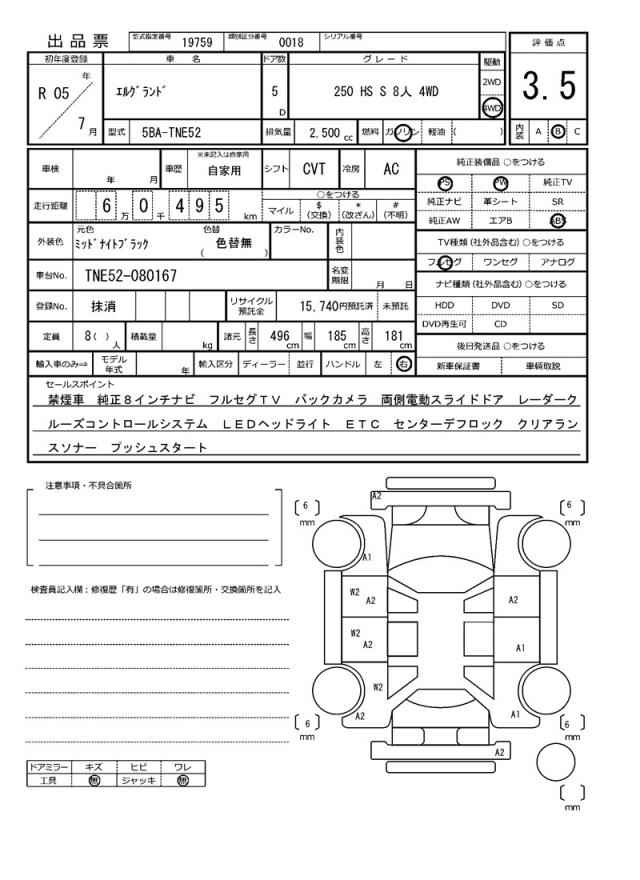 出品票
型式指定番号 19759 類別区分番号 0018 シリアル番号
評価点
3.5
初年度登録 車名 ドア数 グレード 駆動
R 05 年 7 月
エルグランド 5 D 250 HS S 8人 4WD
2WD
4WD
型式 5BA-TNE52 排気量 2,500 cc 燃料 ガソリン 軽油 ( )
内装 A B C
車検 年 月 車歴 ※未記入は自家用 自家用 シフト CVT 冷房 AC
走行距離 6 万 0 千 4 9 5 km
○をつける
マイル $(交換) *(改ざん) #(不明)
外装色 元色 ミッドナイトブラック 色替 ( 色替無 ) カラーNo. 内装色
車台No. TNE52-080167 名変期限 月 日
登録No. 抹消 リサイクル預託金 15,740円預託済 未預託
定員 8( ) 人 積載量 kg 諸元 長さ 496 cm 幅 185 cm 高さ 181 cm
輸入車のみ⇒ モデル年式 年 輸入区分 ディーラー 並行 ハンドル 左 右
純正装備品 ○をつける
PS PW 純正TV
純正ナビ 革シート SR
純正AW エアB ABS
TV種類(社外品含む)○をつける
フルセグ ワンセグ アナログ
ナビ種類(社外品含む)○をつける
HDD DVD SD
DVD再生可 CD
後日発送品 ○をつける
新車保証書 車輌取説
セールスポイント
禁煙車 純正8インチナビ フルセグTV バックカメラ 両側電動スライドドア レーダーク
ルーズコントロールシステム LEDヘッドライト ETC センターデフロック クリアラン
スソナー プッシュスタート
注意事項・不具合箇所
検査員記入欄:修復歴「有」の場合は修復箇所・交換箇所を記入
A2
6 mm
6 mm
A1
W2
A2
A2
W2
A2
A1
W2
A2
A1
6 mm
6 mm
A2
mm
ドアミラー キズ ヒビ ワレ
工具 無 ジャッキ 無